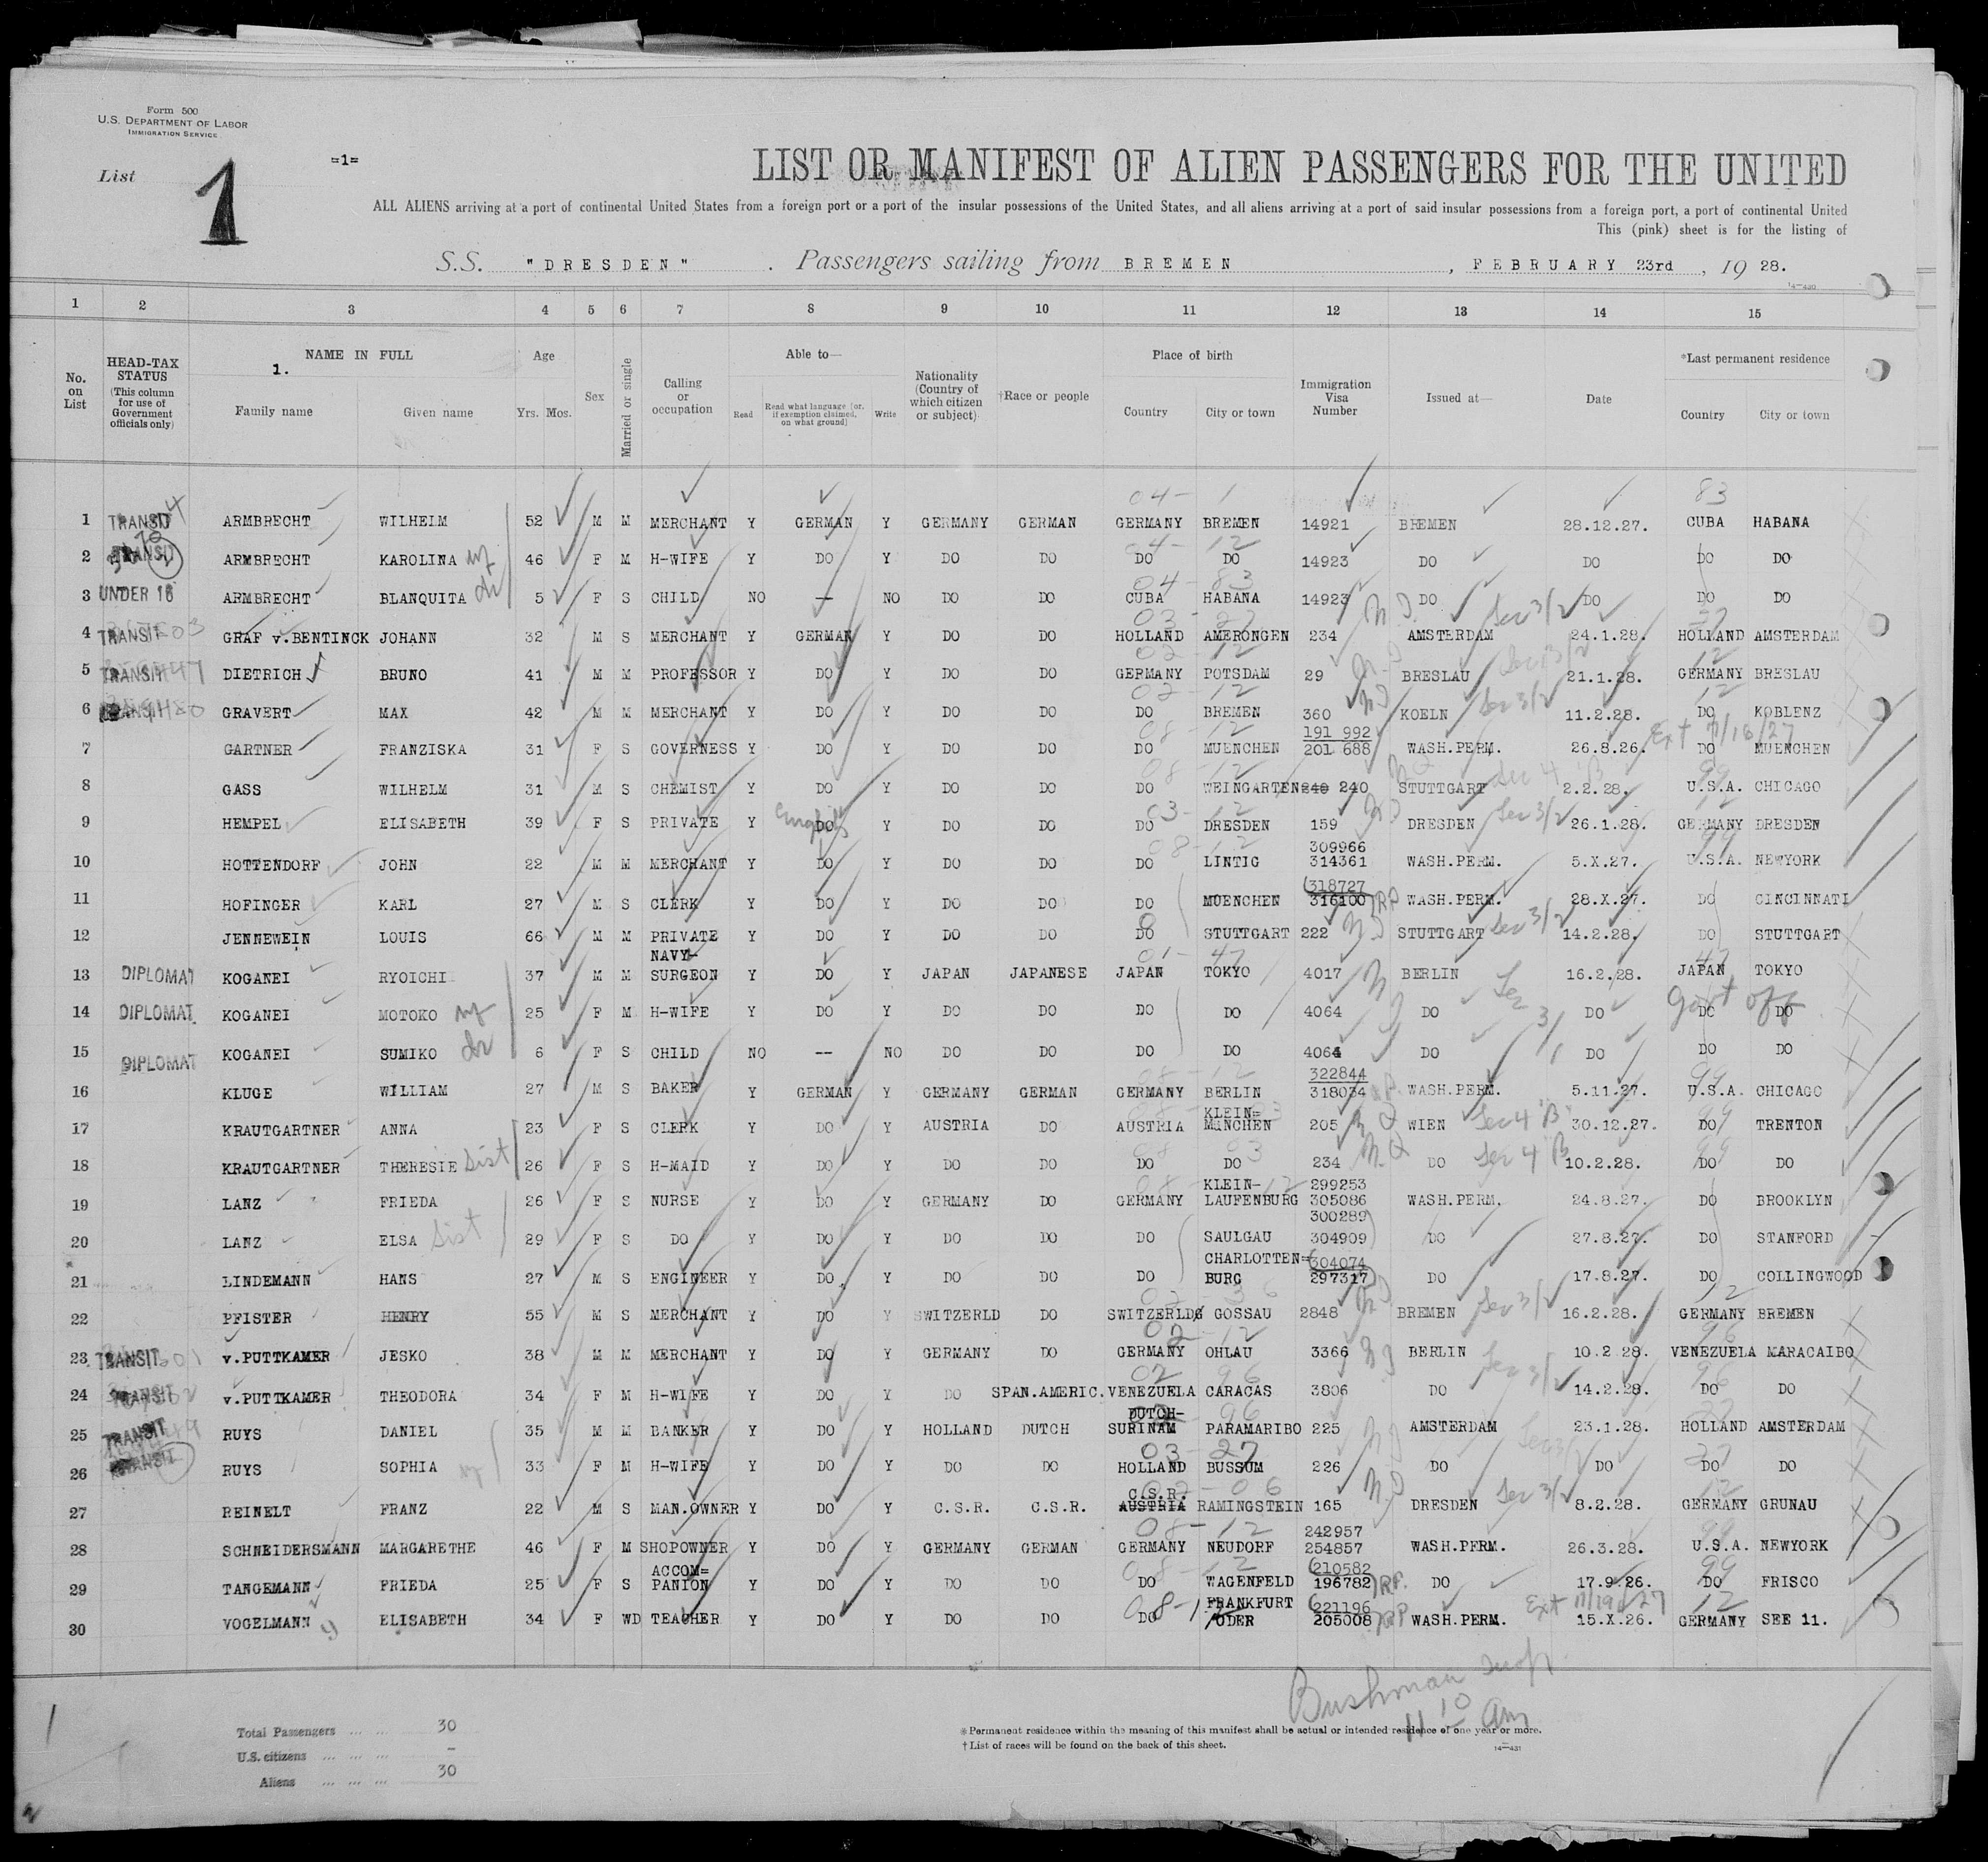 Form 500
U.S. DEPARTMENT OF LABOR
IMMIGRATION SERVICE
List 1
=1=
LIST OR MANIFEST OF ALIEN PASSENGERS FOR THE UNITED
ALL ALIENS arriving at a port of continental United States from a foreign port or a port of the insular possessions of the United States, and all aliens arriving at a port of said insular possessions from a foreign port, a port of continental United
This (pink) sheet is for the listing of
S.S. "DRESDEN". Passengers sailing from BREMEN, FEBRUARY 23rd, 19 28.
1 2 3 4 5 6 7 8 9 10 11 12 13 14 15
No. on List
HEAD-TAX STATUS (This column for use of Government officials only)
NAME IN FULL
1.
Family name Given name
Age
Yrs. Mos.
Sex
Married or single
Calling or occupation
Able to—
Read Read what language [or, if exemption claimed, on what ground] Write
Nationality (Country of which citizen or subject)
†Race or people
Place of birth
Country City or town
Immigration Visa Number
Issued at—
Date
*Last permanent residence
Country City or town
04- 1 83
1 TRANSIT ARMBRECHT WILHELM 52 M M MERCHANT Y GERMAN Y GERMANY GERMAN GERMANY BREMEN 14921 BREMEN 28.12.27. CUBA HABANA
04- 12
2 TRANSIT ARMBRECHT KAROLINA wf 46 F M H-WIFE Y DO Y DO DO DO DO 14923 DO DO DO DO
04- 83
3 UNDER 16 ARMBRECHT BLANQUITA dr 5 F S CHILD NO — NO DO DO CUBA HABANA 14923 DO DO DO DO
03-27 Sec 3/2
4 TRANSIT GRAF v.BENTINCK JOHANN 32 M S MERCHANT Y GERMAN Y DO DO HOLLAND AMERONGEN 234 AMSTERDAM 24.1.28. HOLLAND AMSTERDAM
02-12 Sec 3/2 12
5 TRANSIT DIETRICH BRUNO 41 M M PROFESSOR Y DO Y DO DO GERMANY POTSDAM 29 BRESLAU 21.1.28. GERMANY BRESLAU
02-12 Sec 3/2 12
6 TRANSIT GRAVERT MAX 42 M M MERCHANT Y DO Y DO DO DO BREMEN 360 KOELN 11.2.28. DO KOBLENZ
08-12 191 992 Ext 7/16/27
7 GARTNER FRANZISKA 31 F S GOVERNESS Y DO Y DO DO DO MUENCHEN 201 688 WASH.PERM. 26.8.26. DO MUENCHEN
08-12 Sec 4 B 99
8 GASS WILHELM 31 M S CHEMIST Y DO Y DO DO DO WEINGARTEN 240 240 STUTTGART 2.2.28. U.S.A. CHICAGO
English 03-12 Sec 3/2 12
9 HEMPEL ELISABETH 39 F S PRIVATE Y DO Y DO DO DO DRESDEN 159 DRESDEN 26.1.28. GERMANY DRESDEN
08-12 309966 99
10 HOTTENDORF JOHN 22 M M MERCHANT Y DO Y DO DO DO LINTIG 314361 WASH.PERM. 5.X.27. U.S.A. NEWYORK
318727
11 HOFINGER KARL 27 M S CLERK Y DO Y DO DO DO MUENCHEN 316100 RP WASH.PERM. 28.X.27. DO CINCINNATI
12 JENNEWEIN LOUIS 66 M M PRIVATE Y DO Y DO DO DO STUTTGART 222 STUTTGART Sec 3/2 14.2.28. DO STUTTGART
NAVY- 01-47 47
13 DIPLOMAT KOGANEI RYOICHI 37 M M SURGEON Y DO Y JAPAN JAPANESE JAPAN TOKYO 4017 BERLIN 16.2.28. JAPAN TOKYO
Sec 3/1 govt off
14 DIPLOMAT KOGANEI MOTOKO wf 25 F M H-WIFE Y DO Y DO DO DO DO 4064 DO DO DO DO
15 DIPLOMAT KOGANEI SUMIKO dr 6 F S CHILD NO -- NO DO DO DO DO 4064 DO DO DO DO
08-12 322844 99
16 KLUGE WILLIAM 27 M S BAKER Y GERMAN Y GERMANY GERMAN GERMANY BERLIN 318034 WASH.PERM. 5.11.27. U.S.A. CHICAGO
KLEIN= 99
17 KRAUTGARTNER ANNA 23 F S CLERK Y DO Y AUSTRIA DO AUSTRIA MANCHEN 205 WIEN Sec 4 B 30.12.27. DO TRENTON
08 03 99
18 KRAUTGARTNER THERESIE Sist 26 F S H-MAID Y DO Y DO DO DO DO 234 DO Sec 4 B 10.2.28. DO DO
KLEIN- 12 299253
19 LANZ FRIEDA 26 F S NURSE Y DO Y GERMANY DO GERMANY LAUFENBURG 305086 WASH.PERM. 24.8.27. DO BROOKLYN
300289
20 LANZ ELSA Sist 29 F S DO Y DO Y DO DO DO SAULGAU 304909 DO 27.8.27. DO STANFORD
CHARLOTTEN= 304074
21 LINDEMANN HANS 27 M S ENGINEER Y DO Y DO DO DO BURG 297317 DO 17.8.27. DO COLLINGWOOD
02-36 12
22 PFISTER HENRY 55 M S MERCHANT Y DO Y SWITZERLD DO SWITZERLD GOSSAU 2848 BREMEN Sec 3/2 16.2.28. GERMANY BREMEN
02-12 96
23 TRANSIT v.PUTTKAMER JESKO 38 M M MERCHANT Y DO Y GERMANY DO GERMANY OHLAU 3366 BERLIN 10.2.28. VENEZUELA MARACAIBO
02 96 Sec 3/2 96
24 TRANSIT v.PUTTKAMER THEODORA 34 F M H-WIFE Y DO Y DO SPAN.AMERIC. VENEZUELA CARACAS 3806 DO 14.2.28. DO DO
DUTCH- 96
25 TRANSIT RUYS DANIEL 35 M M BANKER Y DO Y HOLLAND DUTCH SURINAM PARAMARIBO 225 AMSTERDAM 23.1.28. HOLLAND AMSTERDAM
03-27 Sec 3/2 27
26 TRANSIT RUYS SOPHIA wf 33 F M H-WIFE Y DO Y DO DO HOLLAND BUSSUM 226 DO DO DO DO
C.S.R. 06 Sec 3/2 12
27 REINELT FRANZ 22 M S MAN.OWNER Y DO Y C.S.R. C.S.R. AUSTRIA RAMINGSTEIN 165 DRESDEN 8.2.28. GERMANY GRUNAU
08-12 242957 99
28 SCHNEIDERSMANN MARGARETHE 46 F M SHOPOWNER Y DO Y GERMANY GERMAN GERMANY NEUDORF 254857 WASH.PERM. 26.3.28. U.S.A. NEWYORK
ACCOM= 08-12 210582 99
29 TANGEMANN FRIEDA 25 F S PANION Y DO Y DO DO DO WAGENFELD 196782 RP. DO 17.9.26. DO FRISCO
08-12 FRANKFURT 221196 Ext 11/19/27 12
30 VOGELMANN ELISABETH 34 F WD TEACHER Y DO Y DO DO DO /ODER 205008 RP WASH.PERM. 15.X.26. GERMANY SEE 11.
Bushman
11 10 Am
Total Passengers ... ... 30
U.S. citizens ... ... ... -
Aliens ... ... ... 30
*Permanent residence within the meaning of this manifest shall be actual or intended residence of one year or more.
†List of races will be found on the back of this sheet.
14—431